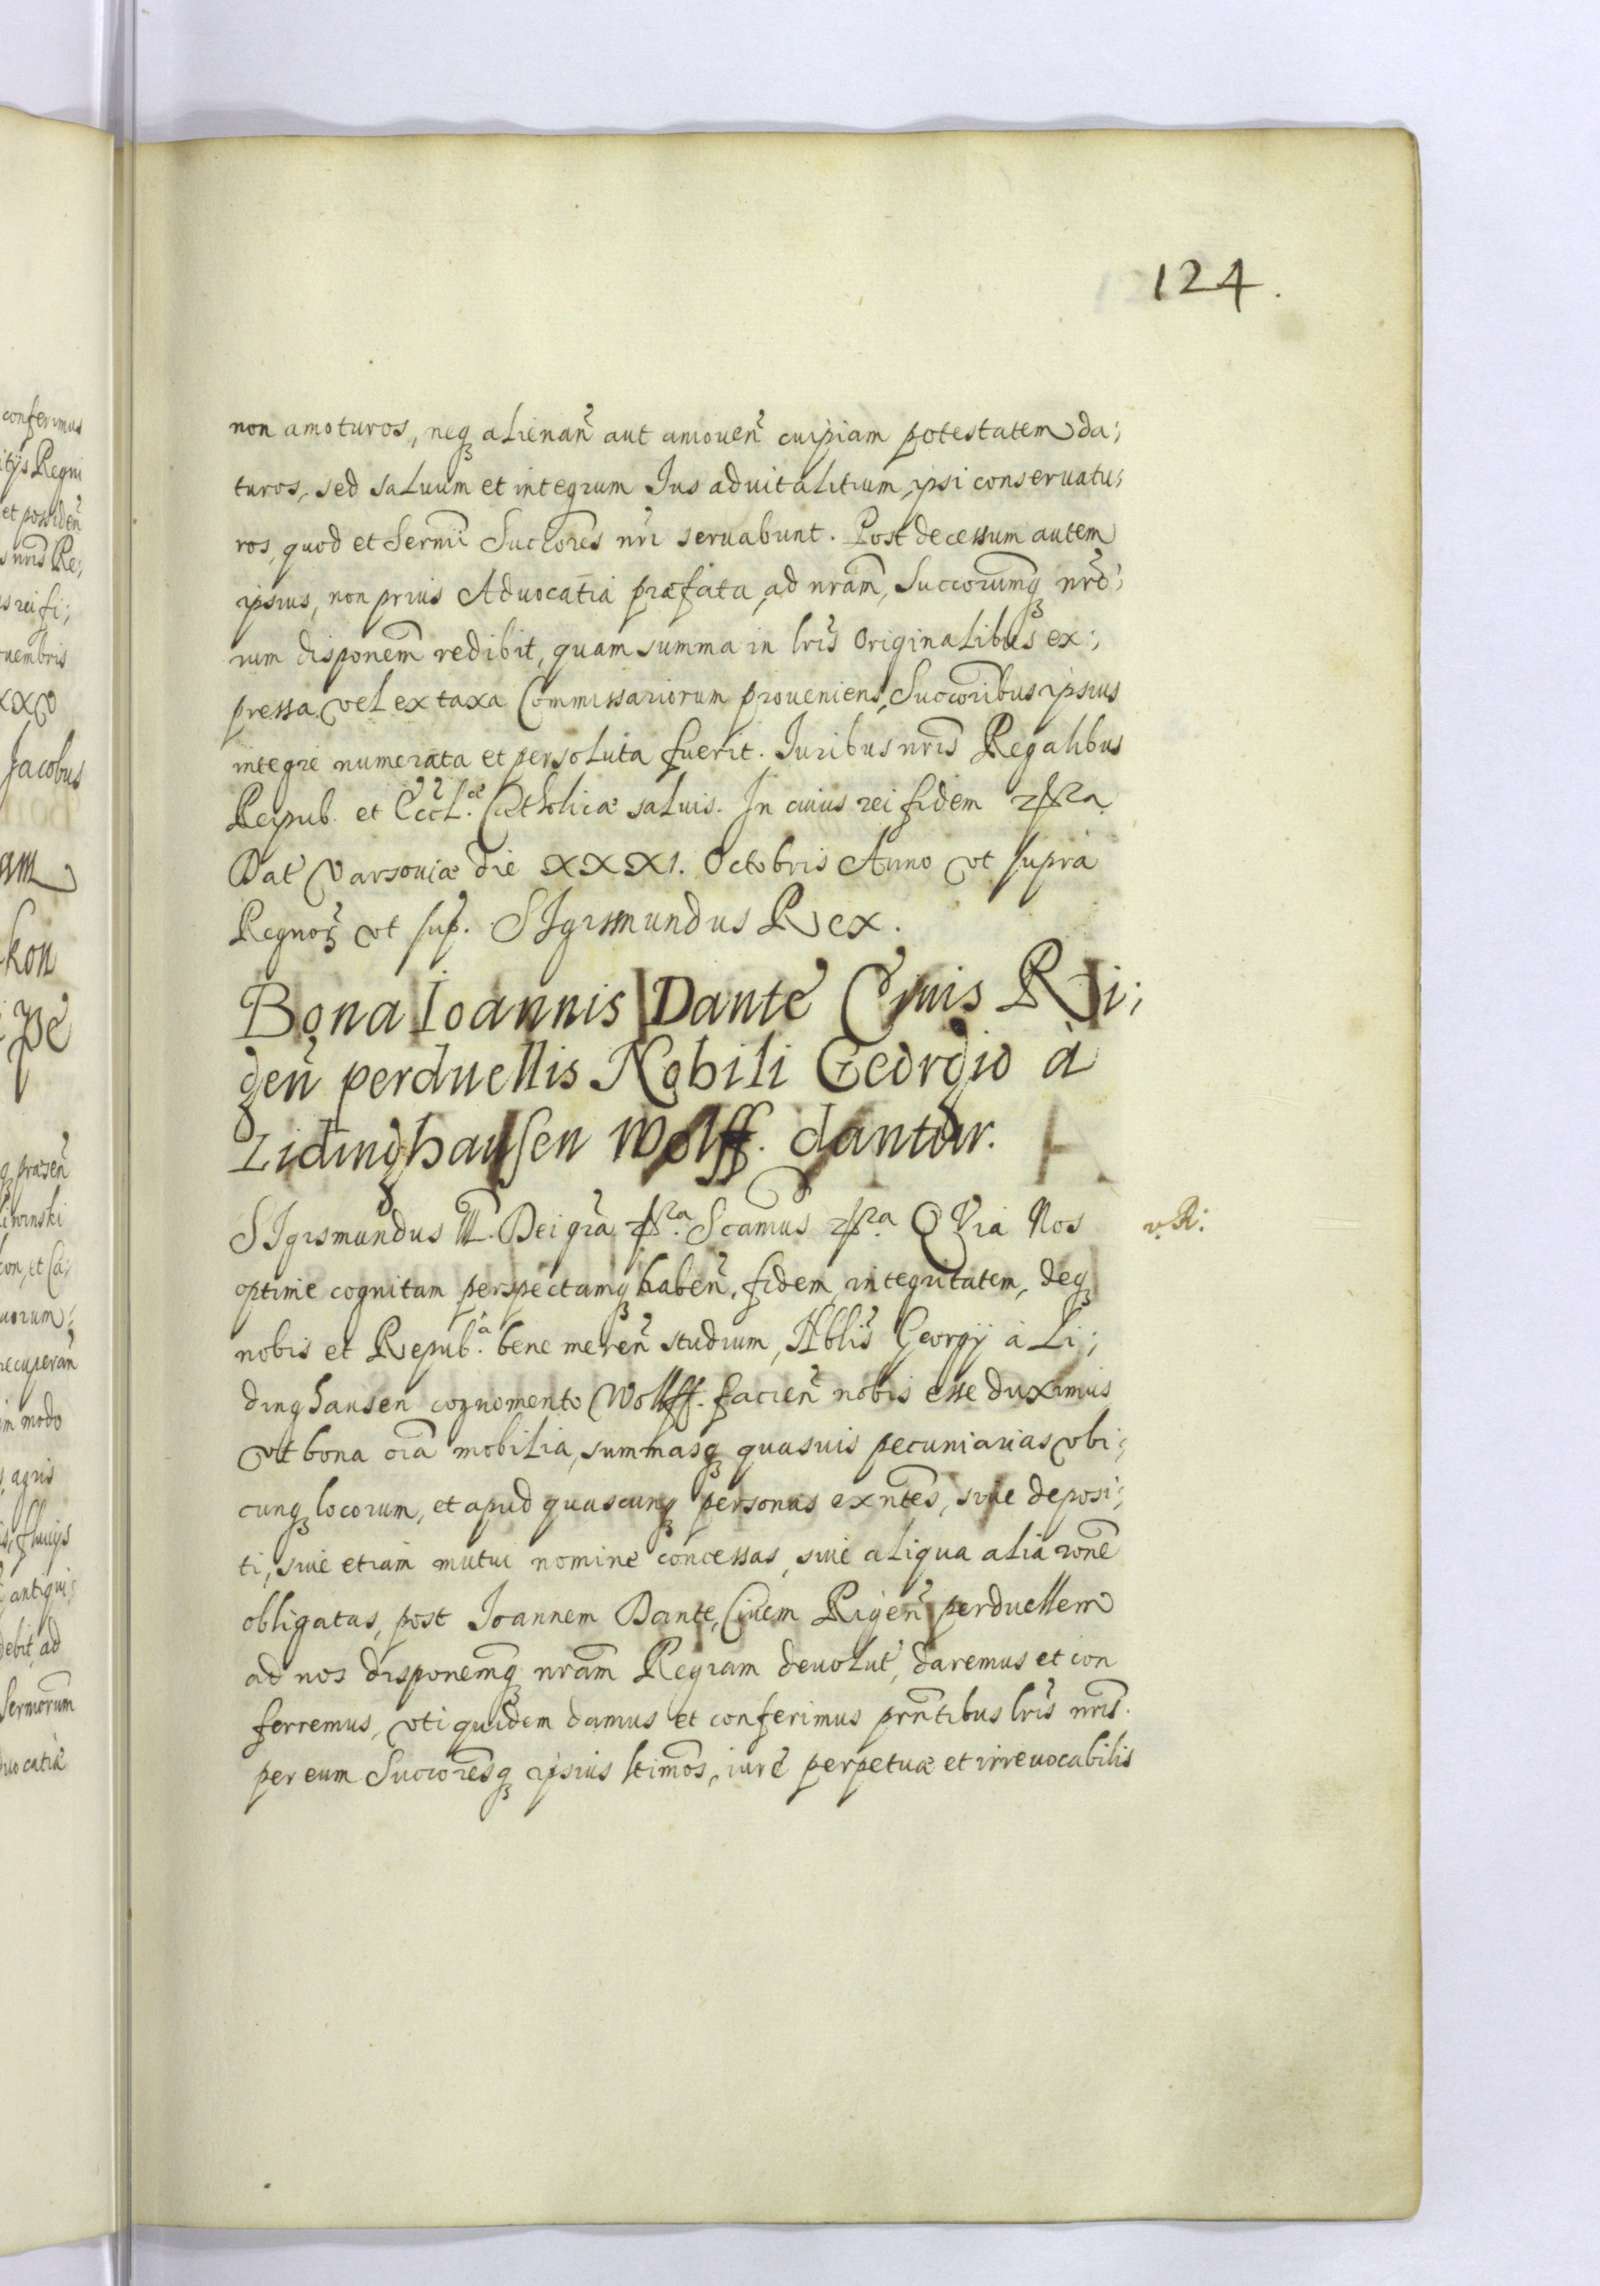 124.
non amoturos, neqꝫ alienan̄ aut amouen̄ cuipiam potestatem da;
turos, sed saluum et integrum Ius aduitalitium, ipsi conseruatu;
ros, quod et Sermi Succores nri seruabunt. Post decessum autem
ipsius, non prius Aduocatia præfata, ad nram, Succorumqꝫ nro;
rum disponem redibit, quam summa in lris Originalibus ex;
pressa vel ex taxa Commissariorum proueniens, Succoribus ipsius
integre numerata et persoluta fuerit. Iuribus nris Regalibus
Reipub. et Eccl.æ Catholicæ saluis. In cuius rei fidem
Dat Varsouiæ die XXXI. Octobris Anno vt supra
Regnoꝝ vt sup. SIgismundus Rex.
Bona Ioannis Dante Ciuis Ri;
gen̄ perduellis Nobili Georgio à
Lidinghausen Wolff. dantur.
SIgismundus III. Dei gra Scamus QVia Nos
v. R:
optime cognitam perspectamqꝫ haben̄. fidem, integritatem, deqꝫ
nobis et Repub.a bene meren̄ studium, Nblis Georgij à Li;
dinghausen cognomento Wolff. facien̄ nobis esse duximus
vt bona oia mobilia, summasqꝫ quasuis pecuniarias vbi;
cunqꝫ locorum, et apud quascunqꝫ personas exntes, siue deposi;
ti, siue etiam mutui nomine concessas, siue aliqua alia rone
obligatas, post Ioannem Dante, Ciuem Rigen̄ perduellem
ad nos disponemqꝫ nram Regiam deuolut, daremus et con
ferremus, vti quidem damus et conferimus prntibus lris nris.
per eum Succoresqꝫ ipsius ltimos, iure perpetuæ et irreuocabilis